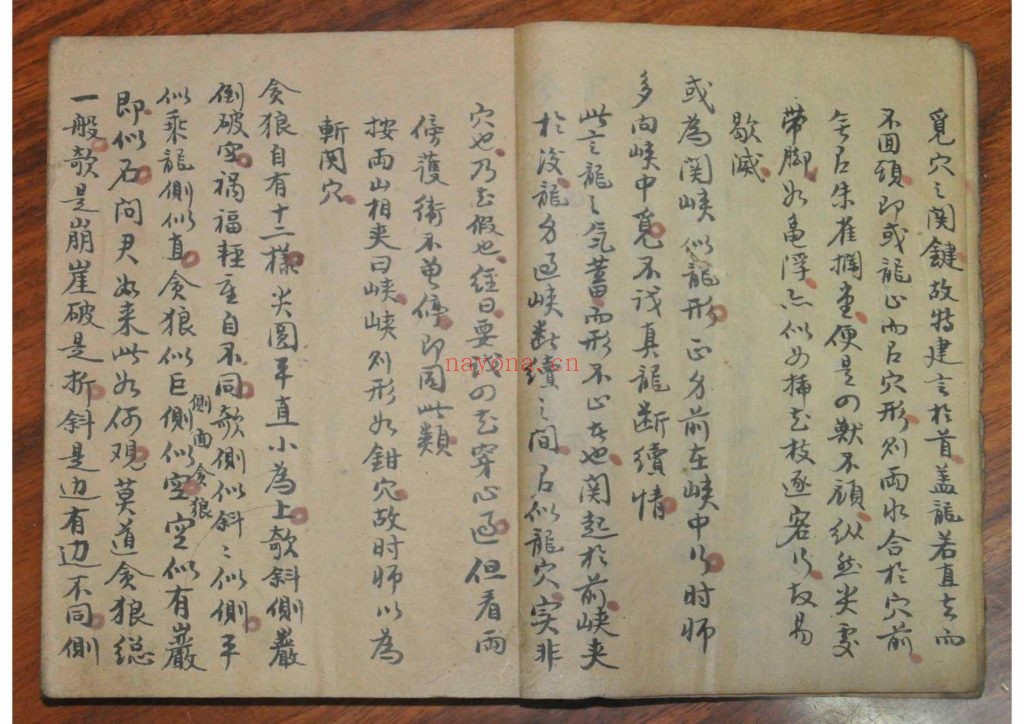 覓穴之関鍵故特建言於首盖龍若直去而
不囬頭即或龍止而口穴形則两水合於穴前
无口朱雀摑堂便是四獸不顧纵然尖雯
带脚如龜浮亦似如插花枝逐客行故易
歇滅
或為関峡似龍形正身前在峡中行时師
多向峡中覓不识真龍断續情
此言龍之氣蓄而形不止者也関起於前峡夹
於後龍身過峡断續之间口似龍穴实非
穴也乃花假也经曰要识四花穿心過但看两
傍護衛不曾停即同此類
按两山相夹曰峡峡则形如鉗穴故时師以為
斬関穴
貪狼自有十二様尖圓平直小為上欹斜側巖
倒破空禍福輕重自不同欹側似斜斜似側平
側面貪狼
似乘龍側似直貪狼似巨側似空空似有巖
即似石問君如来此如何覌莫道貪狼総
一般欹是崩崖破是折斜是边有边不同側
nayona.cn